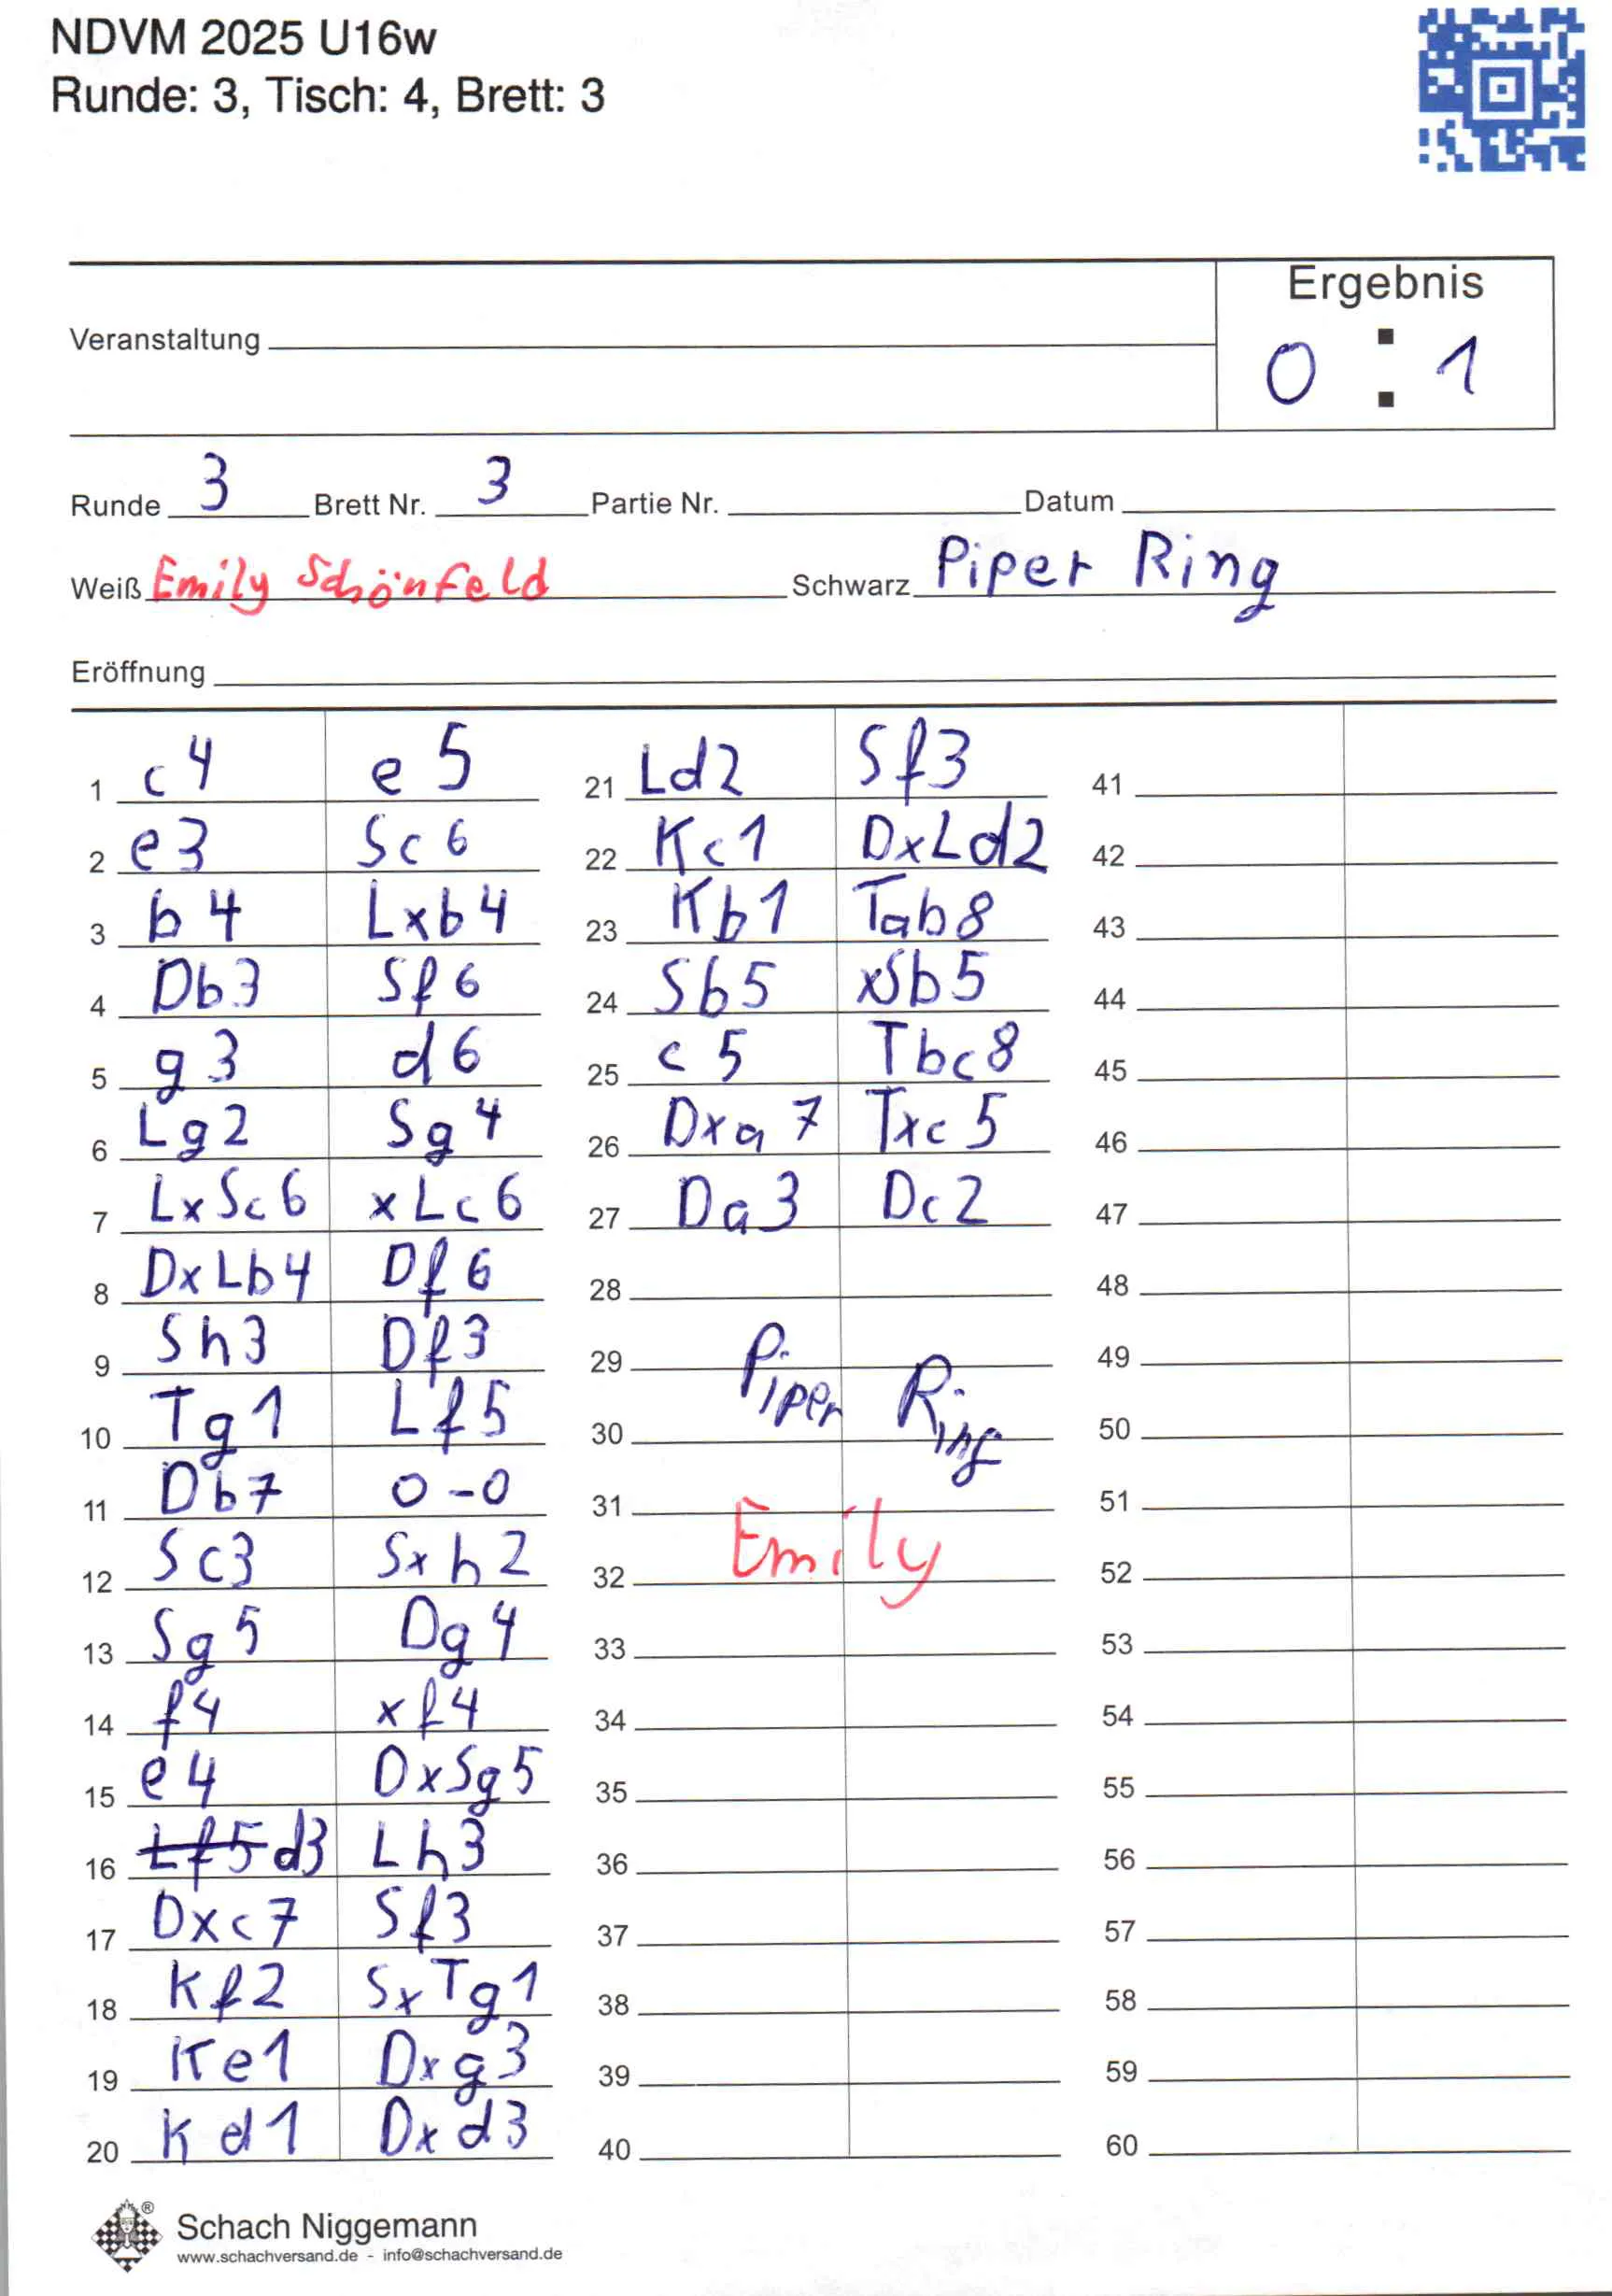 NDVM 2025 U16w
Runde: 3, Tisch: 4, Brett: 3
Ergebnis
Veranstaltung
0 : 1
Runde 3 Brett Nr. 3 Partie Nr. Datum
Weiß Emily Schönfeld Schwarz Piper Ring
Eröffnung
1 c4 e5
2 e3 Sc6
3 b4 Lxb4
4 Db3 Sf6
5 g3 d6
6 Lg2 Sg4
7 LxSc6 xLc6
8 DxLb4 Df6
9 Sh3 Df3
10 Tg1 Lf5
11 Db7 0-0
12 Sc3 Sxh2
13 Sg5 Dg4
14 f4 xf4
15 e4 DxSg5
16 Lf5 d3 Lh3
17 Dxc7 Sf3
18 Kf2 SxTg1
19 Ke1 Dxg3
20 Kd1 Dxd3
21 Ld2 Sf3
22 Kc1 DxLd2
23 Kb1 Tab8
24 Sb5 xSb5
25 c5 Tbc8
26 Dxa7 Txc5
27 Da3 Dc2
28
29 Piper Ring
30
31
32 Emily
33
34
35
36
37
38
39
40
41
42
43
44
45
46
47
48
49
50
51
52
53
54
55
56
57
58
59
60
Schach Niggemann
www.schachversand.de - info@schachversand.de